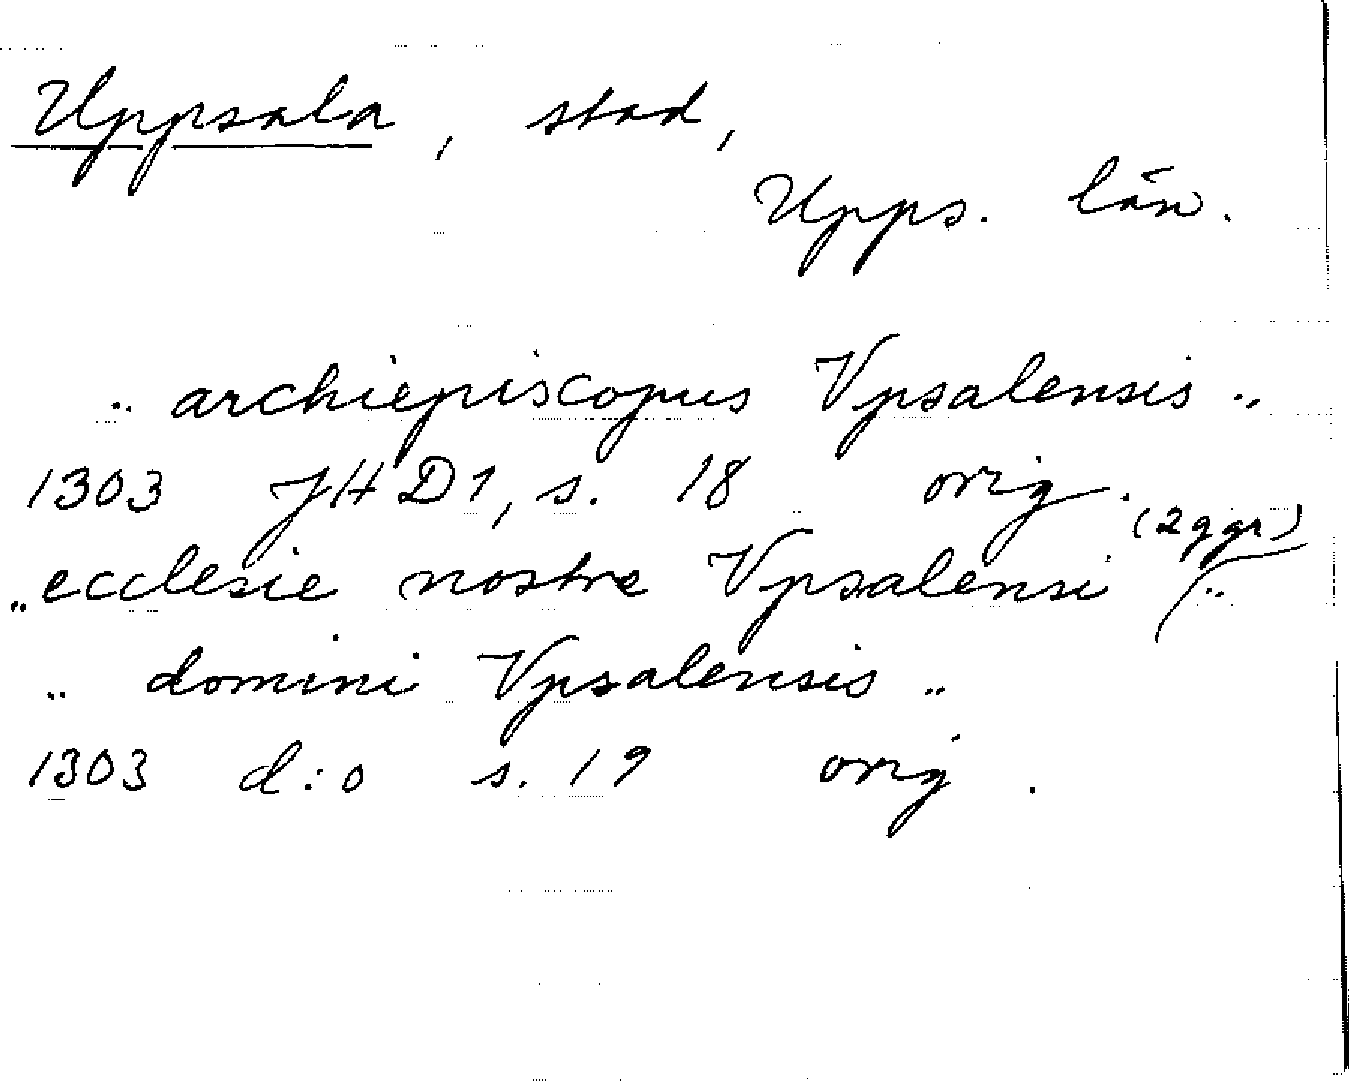 Uppsala, stad,
Upps. län.
.. archiepiscopus Vpsalensis ..
1303 JHD1, s. 18 orig.
(2 ggr)
.. ecclesie nostre Vpsalensi ..
.. domini Vpsalensis ..
1303 d:o s. 19 orig.